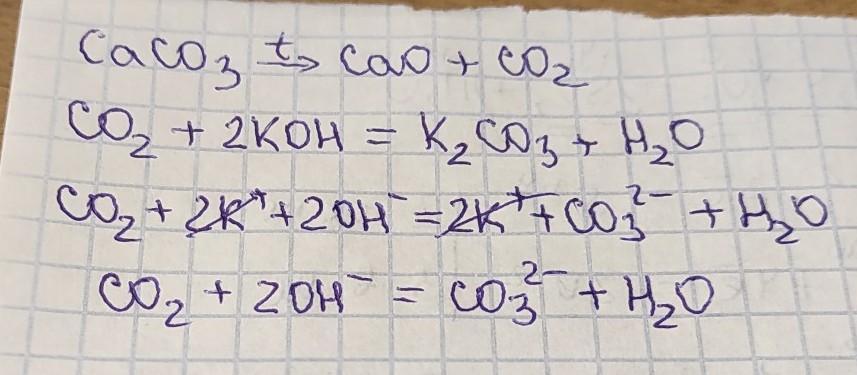 CaCO₃ →ᵗ CaO + CO₂
CO₂ + 2KOH = K₂CO₃ + H₂O
CO₂ + 2K⁺ + 2OH⁻ = 2K⁺ + CO₃²⁻ + H₂O
CO₂ + 2OH⁻ = CO₃²⁻ + H₂O